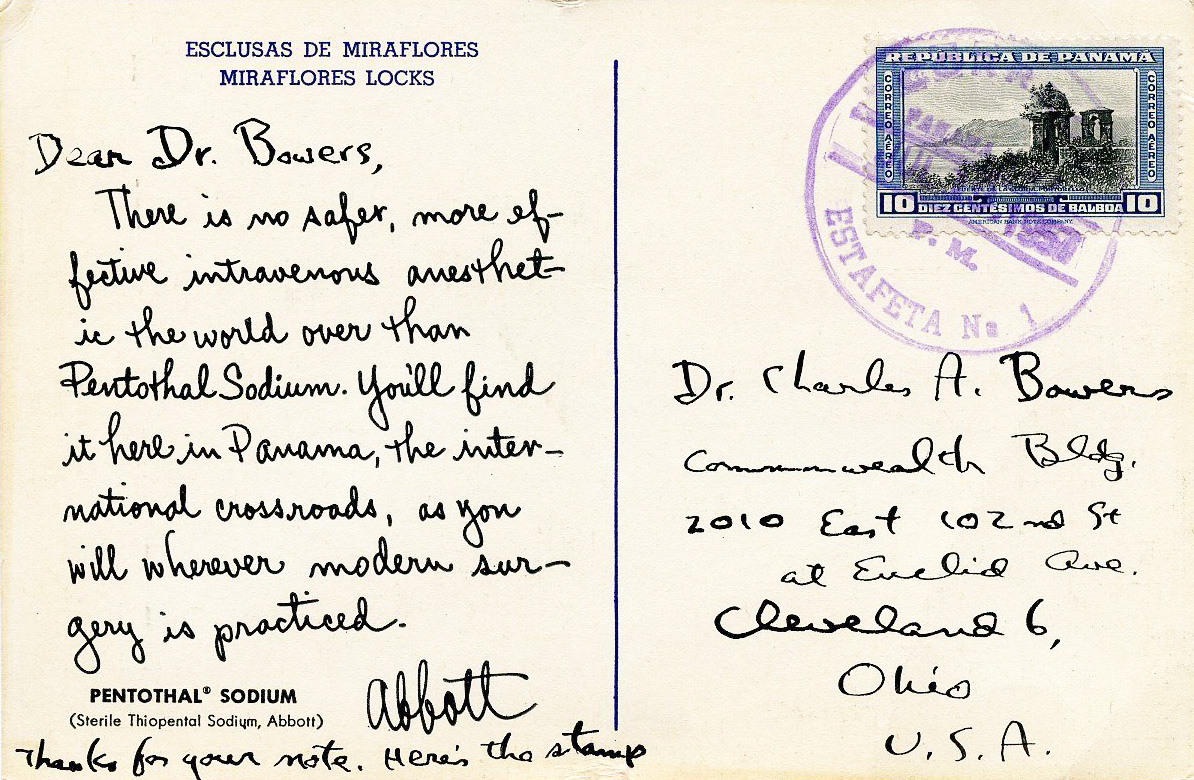 ESCLUSAS DE MIRAFLORES
MIRAFLORES LOCKS
Dear Dr. Bowers,
There is no safer, more ef-
fective intravenous anesthet-
ic the world over than
Pentothal Sodium. You'll find
it here in Panama, the inter-
national crossroads, as you
will wherever modern sur-
gery is practiced.
Abbott
PENTOTHAL® SODIUM
(Sterile Thiopental Sodium, Abbott)
Thanks for your note. Here's the stamp
REPUBLICA DE PANAMA
CORREO AEREO
CORREO AEREO
10 DIEZ CENTESIMOS DE BALBOA 10
AMERICAN BANK NOTE COMPANY.
P. M.
ESTAFETA No. 1
Dr. Charles A. Bowers
Commonwealth Bldg.
2010 East 102nd St
at Euclid Ave.
Cleveland 6,
Ohio
U. S. A.